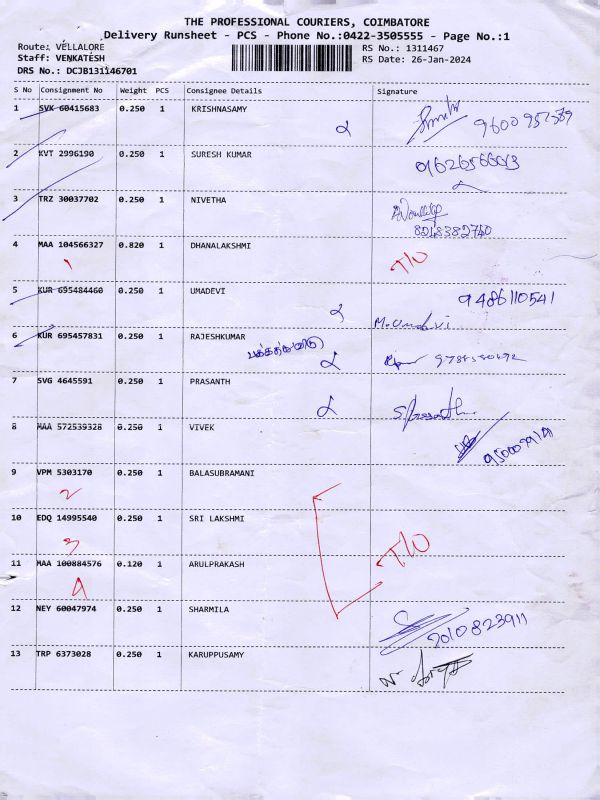 THE PROFESSIONAL COURIERS, COIMBATORE
Delivery Runsheet - PCS - Phone No.:0422-3505555 - Page No.:1
Route: VELLALORE RS No.: 1311467
Staff: VENKATESH RS Date: 26-Jan-2024
DRS No.: DCJB131146701
S No Consignment No Weight PCS Consignee Details Signature
1 SVK 60415683 0.250 1 KRISHNASAMY
2 KVT 2996190 0.250 1 SURESH KUMAR
3 TRZ 30037702 0.250 1 NIVETHA
8218382740
4 MAA 104566327 0.820 1 DHANALAKSHMI T/O
1
5 KUR 695484460 0.250 1 UMADEVI 9486110541
M. Umadevi
6 KUR 695457831 0.250 1 RAJESHKUMAR
பக்கத்து வீடு
7 SVG 4645591 0.250 1 PRASANTH S. Prasanth
8 MAA 572539328 0.250 1 VIVEK
9 VPM 5303170 0.250 1 BALASUBRAMANI
2
10 EDQ 14995540 0.250 1 SRI LAKSHMI
3 T/O
11 MAA 100884576 0.120 1 ARULPRAKASH
4
12 NEY 60047974 0.250 1 SHARMILA
9010823911
13 TRP 6373028 0.250 1 KARUPPUSAMY